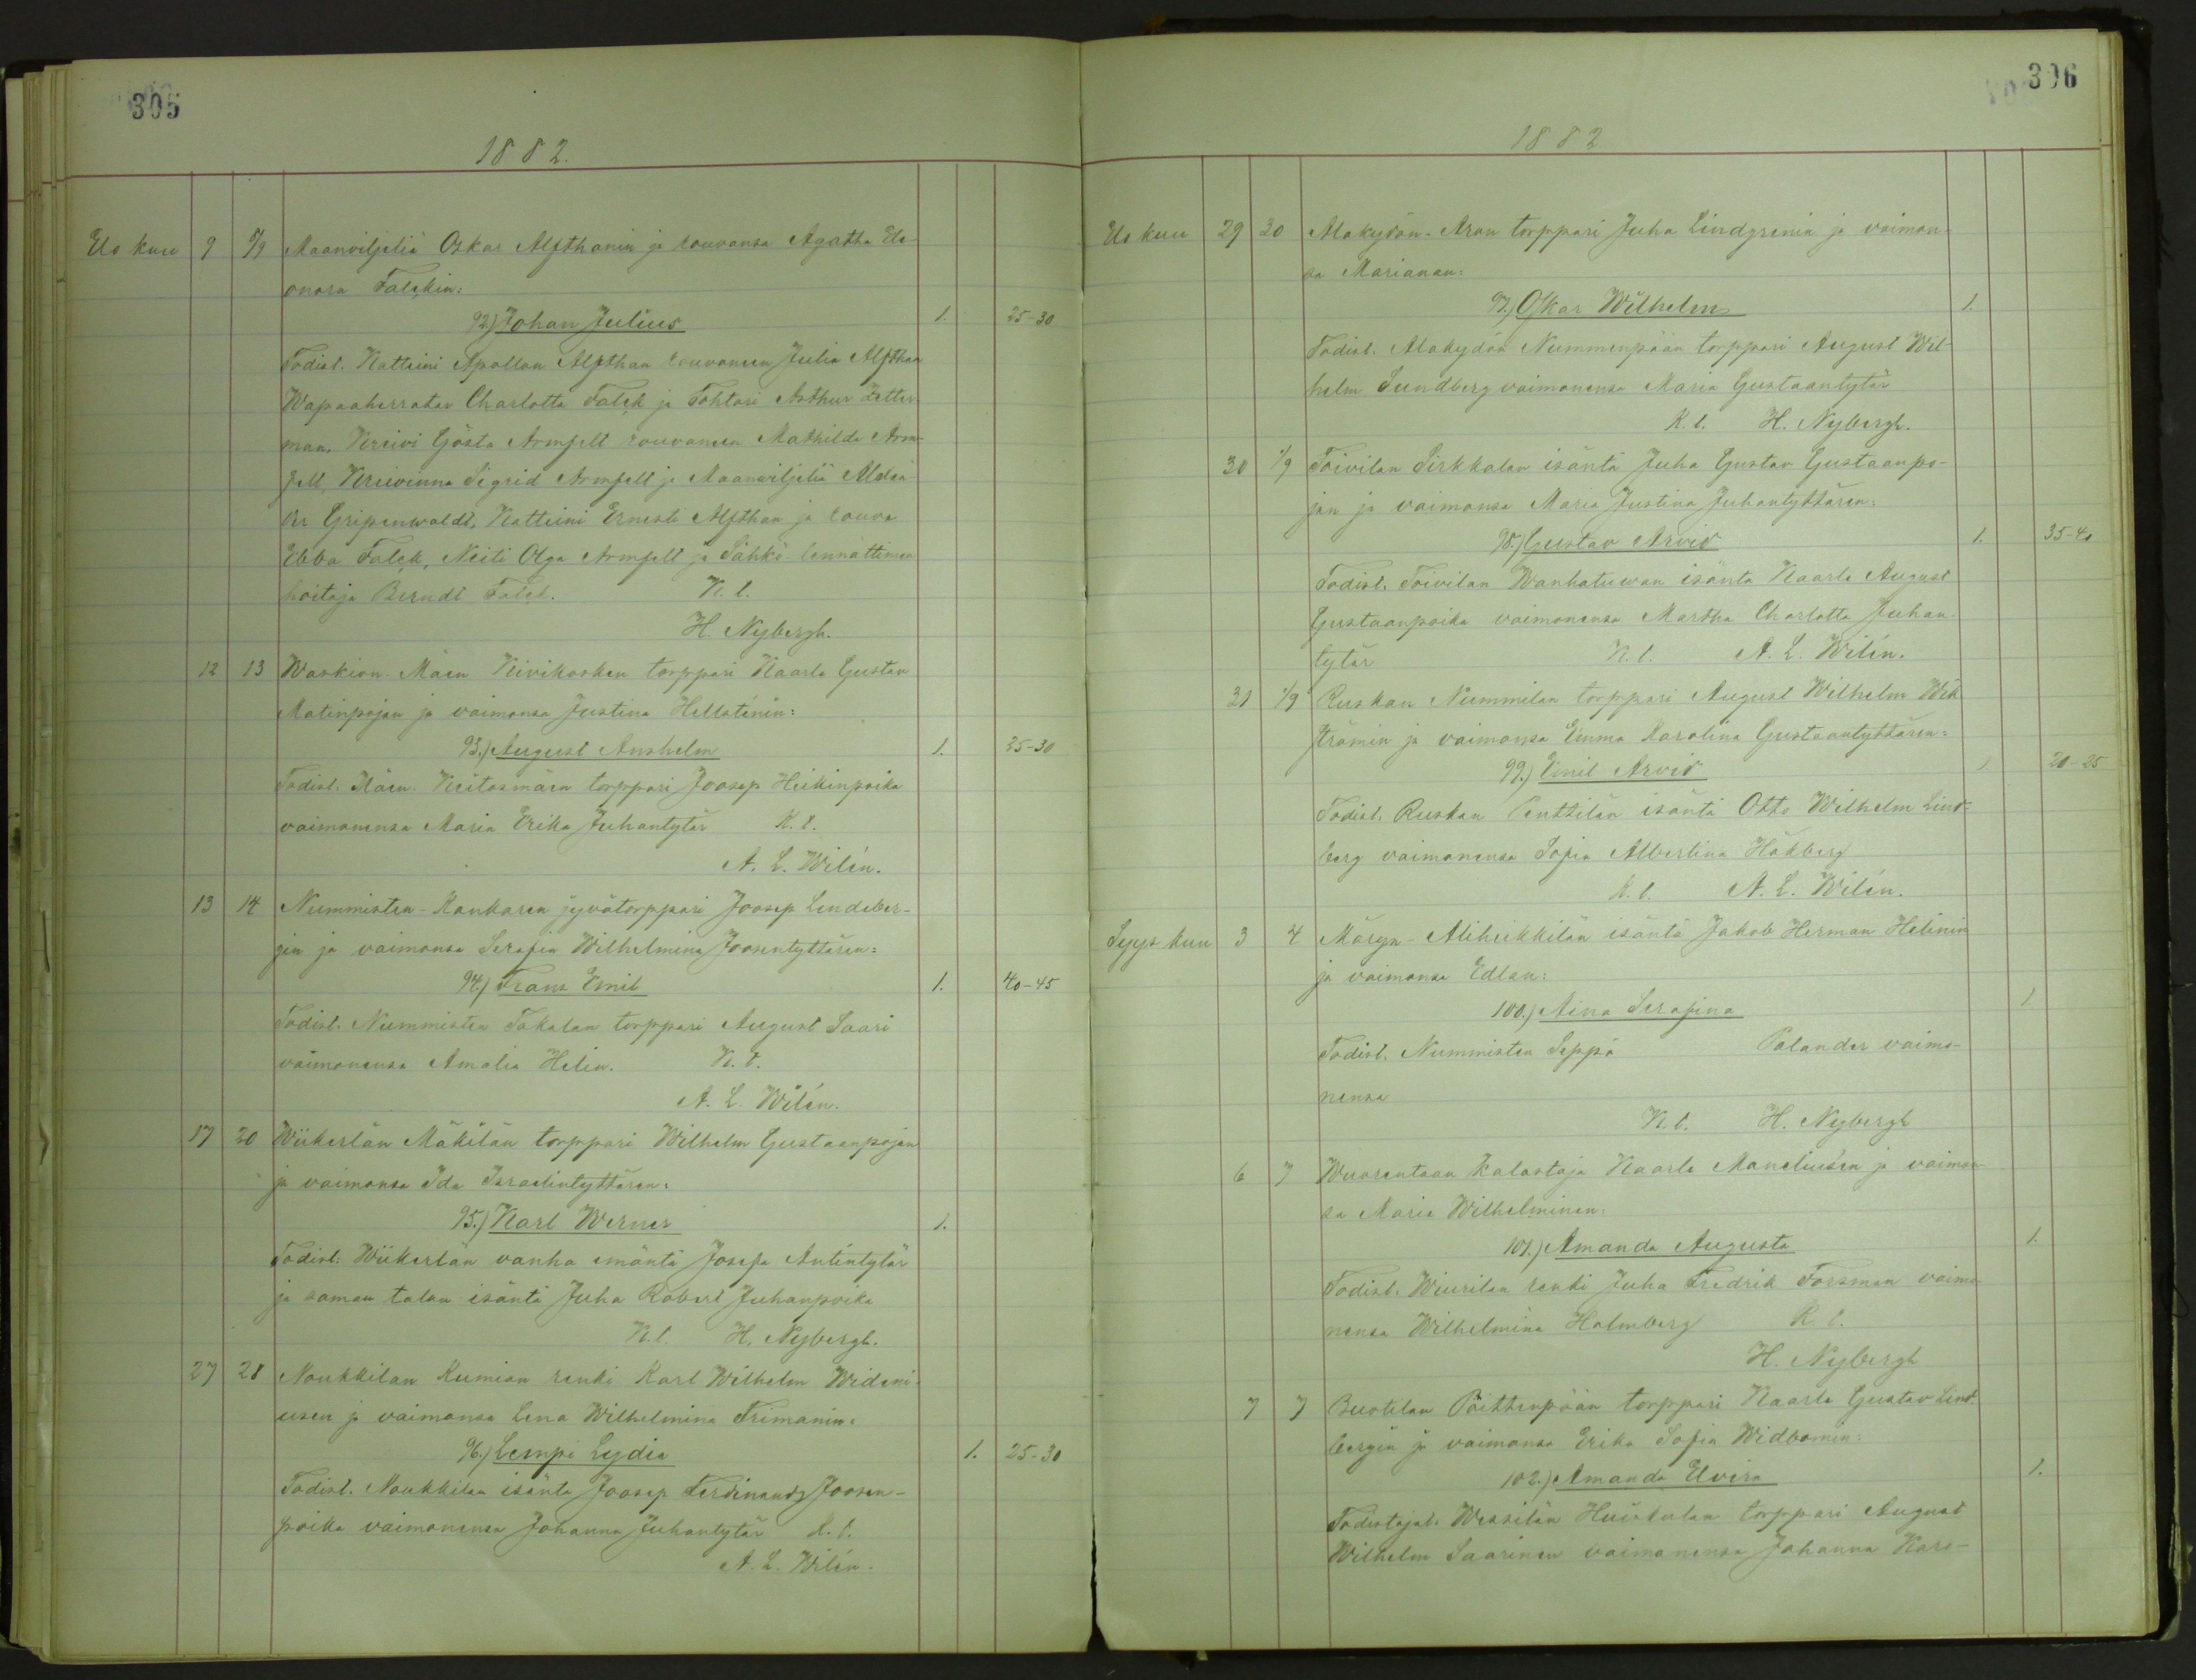 305
1882.
Elo kuu 9 8/9 Maanviljeliä Oskar Alfthanin ja rouvansa Agatha Ele-
onora Falckin:
92.) Johan Julius 1. 25-30
Todist. Katteini Apollon Alfthan rouvaneen Julia Alfthan
Wapaaherratar Charlotta Falck ja Tohtori Arthur Zetter-
man, Kreivi Gösta Armfelt rouvaneen Mathilda Arm-
felt, Kreivinna Sigrid Armfelt ja Maanviljeliä Alexan-
der Gripenwaldt, Katteini Ernesti Alfthan ja rouva
Ebba Falck, Neiti Olga Armfelt ja Sähkö-lennättimen
hoitaja Berndt Falck. K. l.
H. Nybergh.
12 13 Waskion-Mäen Kivikosken torppari Kaarle Gustav
Matinpojan ja vaimonsa Justina Hellsténin:
93.) August Anshelm 1. 25-30
Todist. Mäen torppari Joosep Heikinpoika
vaimonensa Maria Erika Juhantytär K. l.
A. L. Wilén.
13 14 Nummisten-Kankaren jyvätorppari Joosep Lindeber-
gin ja vaimonsa Serafia Wilhelmina Joosentyttären:
94.) Frans Emil 1. 40-45
Todist. Nummisten Takalan torppari August Saari
vaimonensa Amalia Helin. K. l.
A. L. Wilén.
17 20 Wiikerlän Mäkilän torppari Wilhelm Gustaanpojan
ja vaimonsa Ida Israelintyttären:
95.) Karl Werner 1.
Todist: Wiikerlän vanha emäntä Josefa Antintytär
ja saman talan isäntä Juha Robert Juhanpoika
K. l. H. Nybergh.
27 28 Naukkilan Kumion renki Karl Wilhelm Wideni-
usen ja vaimonsa Lena Wilhelmina Frimanin:
96.) Lempi Lydia 1. 25-30
Todist. Naukkilan isäntä Joosep Ferdinand Joosen-
poika vaimonensa Johanna Juhantytär K. l.
A. L. Wilén.
306
1882
Elo kuu 29 30 Alakydön-Aron torppari Juha Lindgrenin ja vaimon-
sa Marianan:
97.) Oskar Wilhelm 1.
Todist. Alakydön Nummenpään torppari August Wil-
helm Sundberg vaimonensa Maria Gustaantytär
K. l. H. Nybergh.
30 1/9 Toivilan Sirkkalan isäntä Juha Gustav Gustaanpo-
jan ja vaimonsa Maria Justina Juhantyttären:
98.) Gustav Arvid 1. 35-40
Todist. Toivilan Wanhatuwan isäntä Kaarle August
Gustaanpoika vaimonensa Martha Charlotta Juhan-
tytär K. l. A. L. Wilén.
31 1/9 Ruskan Nummilan torppari August Wilhelm Wik
strömin ja vaimonsa Emma Karolina Gustaantyttären:
99.) Emil Arvid 1. 20-25
Todist. Ruskan Penttilän isäntä Otto Wilhelm Lind-
berg vaimonensa Sofia Albertina Hökberg
K. l. A. L. Wilén.
Syys kuu 3 4 Märyn-Aliheikkilän isäntä Jakob Herman Helinin
ja vaimonsa Edlan:
100.) Aina Serafina 1.
Todist. Nummisten Seppä Palander vaimo-
nensa
K. l. H. Nybergh
6 7 Wuorentaan Kalastaja Kaarle Maneliusen ja vaimon-
sa Maria Wilhelminan:
101.) Amanda Augusta 1.
Todist. Wiurilan renki Juha Fredrik Forsman vaimo-
nensa Wilhelmina Holmberg K. l.
H. Nybergh
7 7 Buotilan Päittenpään torppari Kaarle Gustav Lind-
bergin ja vaimonsa Erika Sofia Widbomin:
102.) Amanda Elvira 1.
Todistajat. Wessilän Huirkulan torppari August
Wilhelm Saarinen vaimonensa Johanna Karo-